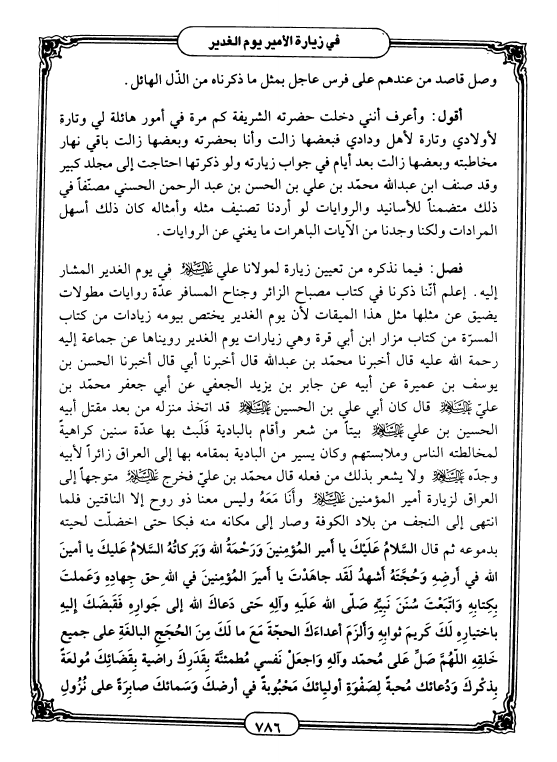 في زيارة الأمير يوم الغدير
وصل قاصد من عندهم على فرس عاجل بمثل ما ذكرناه من الذّل الهائل.
أقول: وأعرف أنني دخلت حضرته الشريفة كم مرة في أمور هائلة لي وتارة
لأولادي وتارة لأهل ودادي فبعضها زالت وأنا بحضرته وبعضها زالت باقي نهار
مخاطبته وبعضها زالت بعد أيام في جواب زيارته ولو ذكرتها احتاجت إلى مجلد كبير
وقد صنف ابن عبدالله محمّد بن علي بن الحسن بن عبد الرحمن الحسني مصنّفاً في
ذلك متضمناً للأسانيد والروايات لو أردنا تصنيف مثله وأمثاله كان ذلك أسهل
المرادات ولكنا وجدنا من الآيات الباهرات ما يغني عن الروايات.
فصل: فيما نذكره من تعيين زيارة لمولانا علي عليه السلام في يوم الغدير المشار
إليه. إعلم أنّنا ذكرنا في كتاب مصباح الزائر وجناح المسافر عدّة روايات مطولات
يضيق عن مثلها مثل هذا الميقات لأن يوم الغدير يختص بيومه زيادات من كتاب
المسرّة من كتاب مزار ابن أبي قرة وهي زيارات يوم الغدير رويناها عن جماعة إليه
رحمة الله عليه قال أخبرنا محمّد بن عبدالله قال أخبرنا أبي قال أخبرنا الحسن بن
يوسف بن عميرة عن أبيه عن جابر بن يزيد الجعفي عن أبي جعفر محمّد بن
عليّ عليه السلام قال كان أبي علي بن الحسين عليه السلام قد اتخذ منزله من بعد مقتل أبيه
الحسين بن علي عليه السلام بيتاً من شعر وأقام بالبادية فَلَبث بها عدّة سنين كراهيةً
لمخالطته الناس وملابستهم وكان يسير من البادية بمقامه بها إلى العراق زائراً لأبيه
وجدّه عليه السلام ولا يشعر بذلك من فعله قال محمّد بن عليّ فخرج عليه السلام متوجهاً إلى
العراق لزيارة أمير المؤمنين عليه السلام وأَنَا مَعَهُ وليس معنا ذو روح إلا الناقتين فلما
انتهى إلى النجف من بلاد الكوفة وصار إلى مكانه منه فبكا حتى اخضلّت لحيته
بدموعه ثم قال السلامُ عَلَيْكَ يا أمير المؤمِنينَ وَرَحْمَةُ الله وَبَركاتُهُ السّلامُ عَليكَ يا أمينَ
الله في أرضِهِ وَحُجَّتَهُ أشهدُ لَقَد جاهَدْتَ يا أَميرَ المُؤمِنينَ في اللهِ حق جِهادِهِ وَعَملتَ
بِكتابِهِ وَاتبَعْتَ سُنَنَ نَبيِّهِ صَلّى الله عَلَيهِ وَآلِهِ حَتى دَعاكَ الله إلى جَوارِهِ فَقَبَضَكَ إليهِ
باختيارِهِ لَكَ كَريمَ ثوابِهِ وَأَلزَمَ أعداءَكَ الحجّةَ مَعَ ما لَكَ مِنَ الحُجَجِ البالغَةِ على جميع
خَلقِهِ اللّهُمَّ صَلِّ على مُحمّد وآلِهِ وَاجعَلْ نَفسي مُطمئنّةً بِقَدَرِكَ راضية بِقَضائِكَ مُولعَةً
بِذكْرِكَ وَدُعائك مُحبةً لِصَفْوَةِ أَوليائِكَ مَحْبُوبةً في أرضكَ وَسَمائكَ صابرَةً على نُزُولِ
٧٨٦